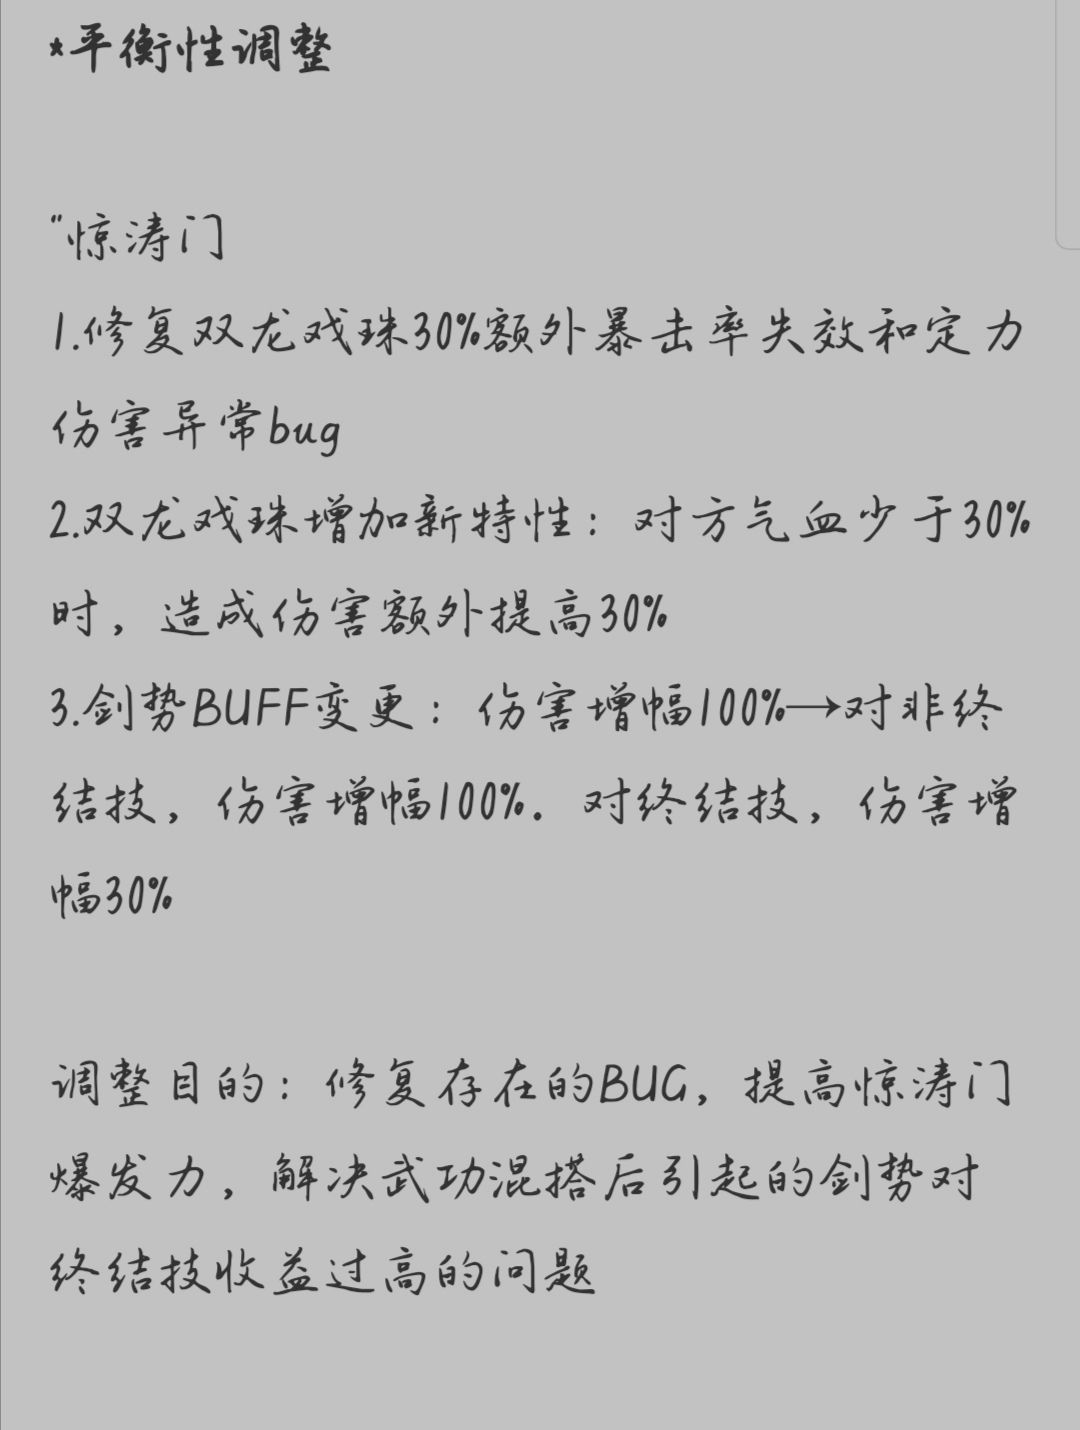 *平衡性调整
"惊涛门
1.修复双龙戏珠30%额外暴击率失效和定力
伤害异常bug
2.双龙戏珠增加新特性：对方气血少于30%
时，造成伤害额外提高30%
3.剑势BUFF变更：伤害增幅100%→对非终
结技，伤害增幅100%. 对终结技，伤害增
幅30%
调整目的：修复存在的BUG，提高惊涛门
爆发力，解决武功混搭后引起的剑势对
终结技收益过高的问题